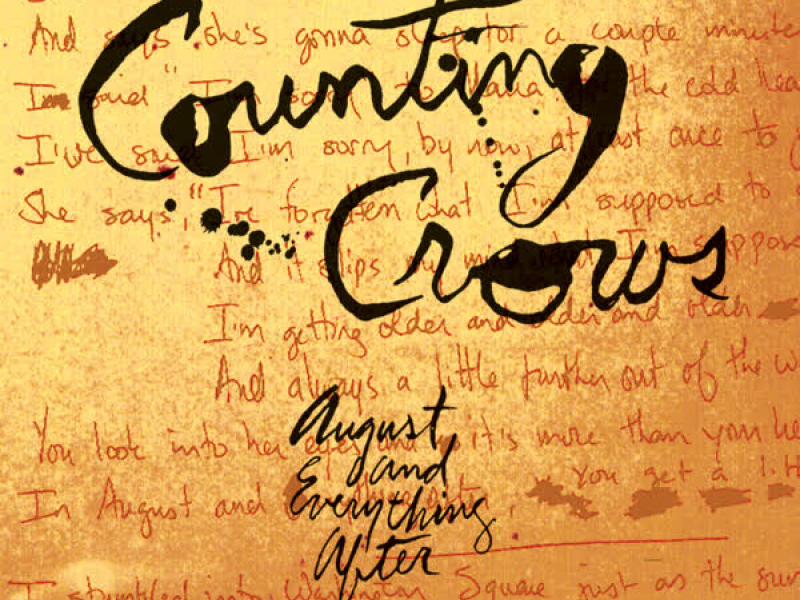 Counting
Crows
August
and
Everything
After
And says she's gonna a couple minute
I'm said "I'm sorry to the cold
I've said I'm sorry, by now, at least once to
She says, "I've forgotten what I'm supposed to
And it slips my mind I'm suppose
I'm getting older and older and
And always a little further out of the w
You look into her eyes and it's more than your he
In August and , You get a litt
I stumbled into Washington Square just as the sun